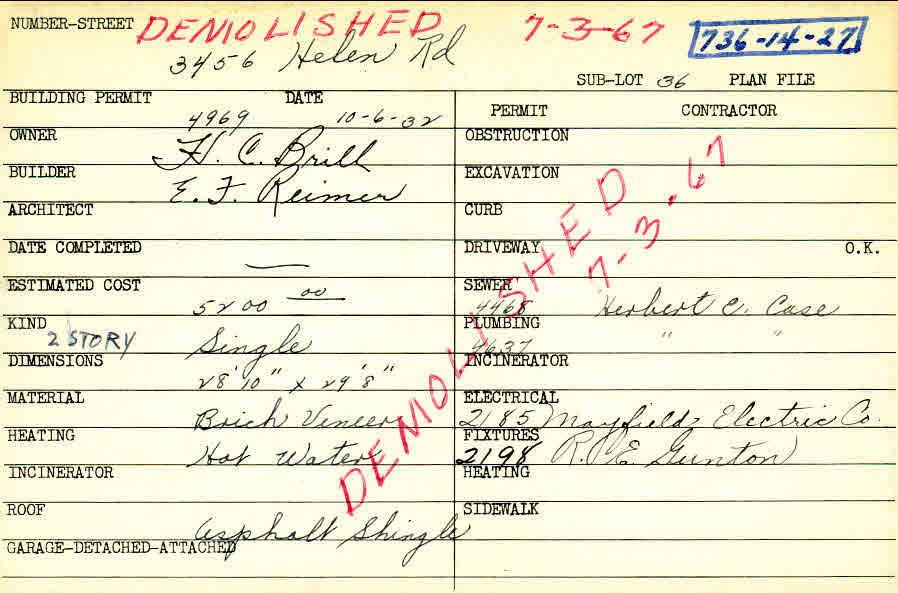 NUMBER-STREET DEMOLISHED 7-3-67 736-14-27
3456 Helen Rd
SUB-LOT 36 PLAN FILE
BUILDING PERMIT DATE
4969 10-6-32
PERMIT CONTRACTOR
OWNER H. C. Brill
OBSTRUCTION
BUILDER E. F. Reimer
EXCAVATION
ARCHITECT
CURB
DATE COMPLETED —
DRIVEWAY O.K.
ESTIMATED COST 5200 00
SEWER 4468 Herbert C. Case
KIND 2 STORY Single
PLUMBING 4637 " "
DIMENSIONS 28'10" x 29'8"
INCINERATOR
MATERIAL Brick Veneer
ELECTRICAL 2185 Mayfield Electric Co.
HEATING Hot Water
FIXTURES 2198 R. E. Gunton
INCINERATOR
HEATING
ROOF Asphalt Shingle
SIDEWALK
GARAGE-DETACHED-ATTACHED
DEMOLISHED
7-3-67